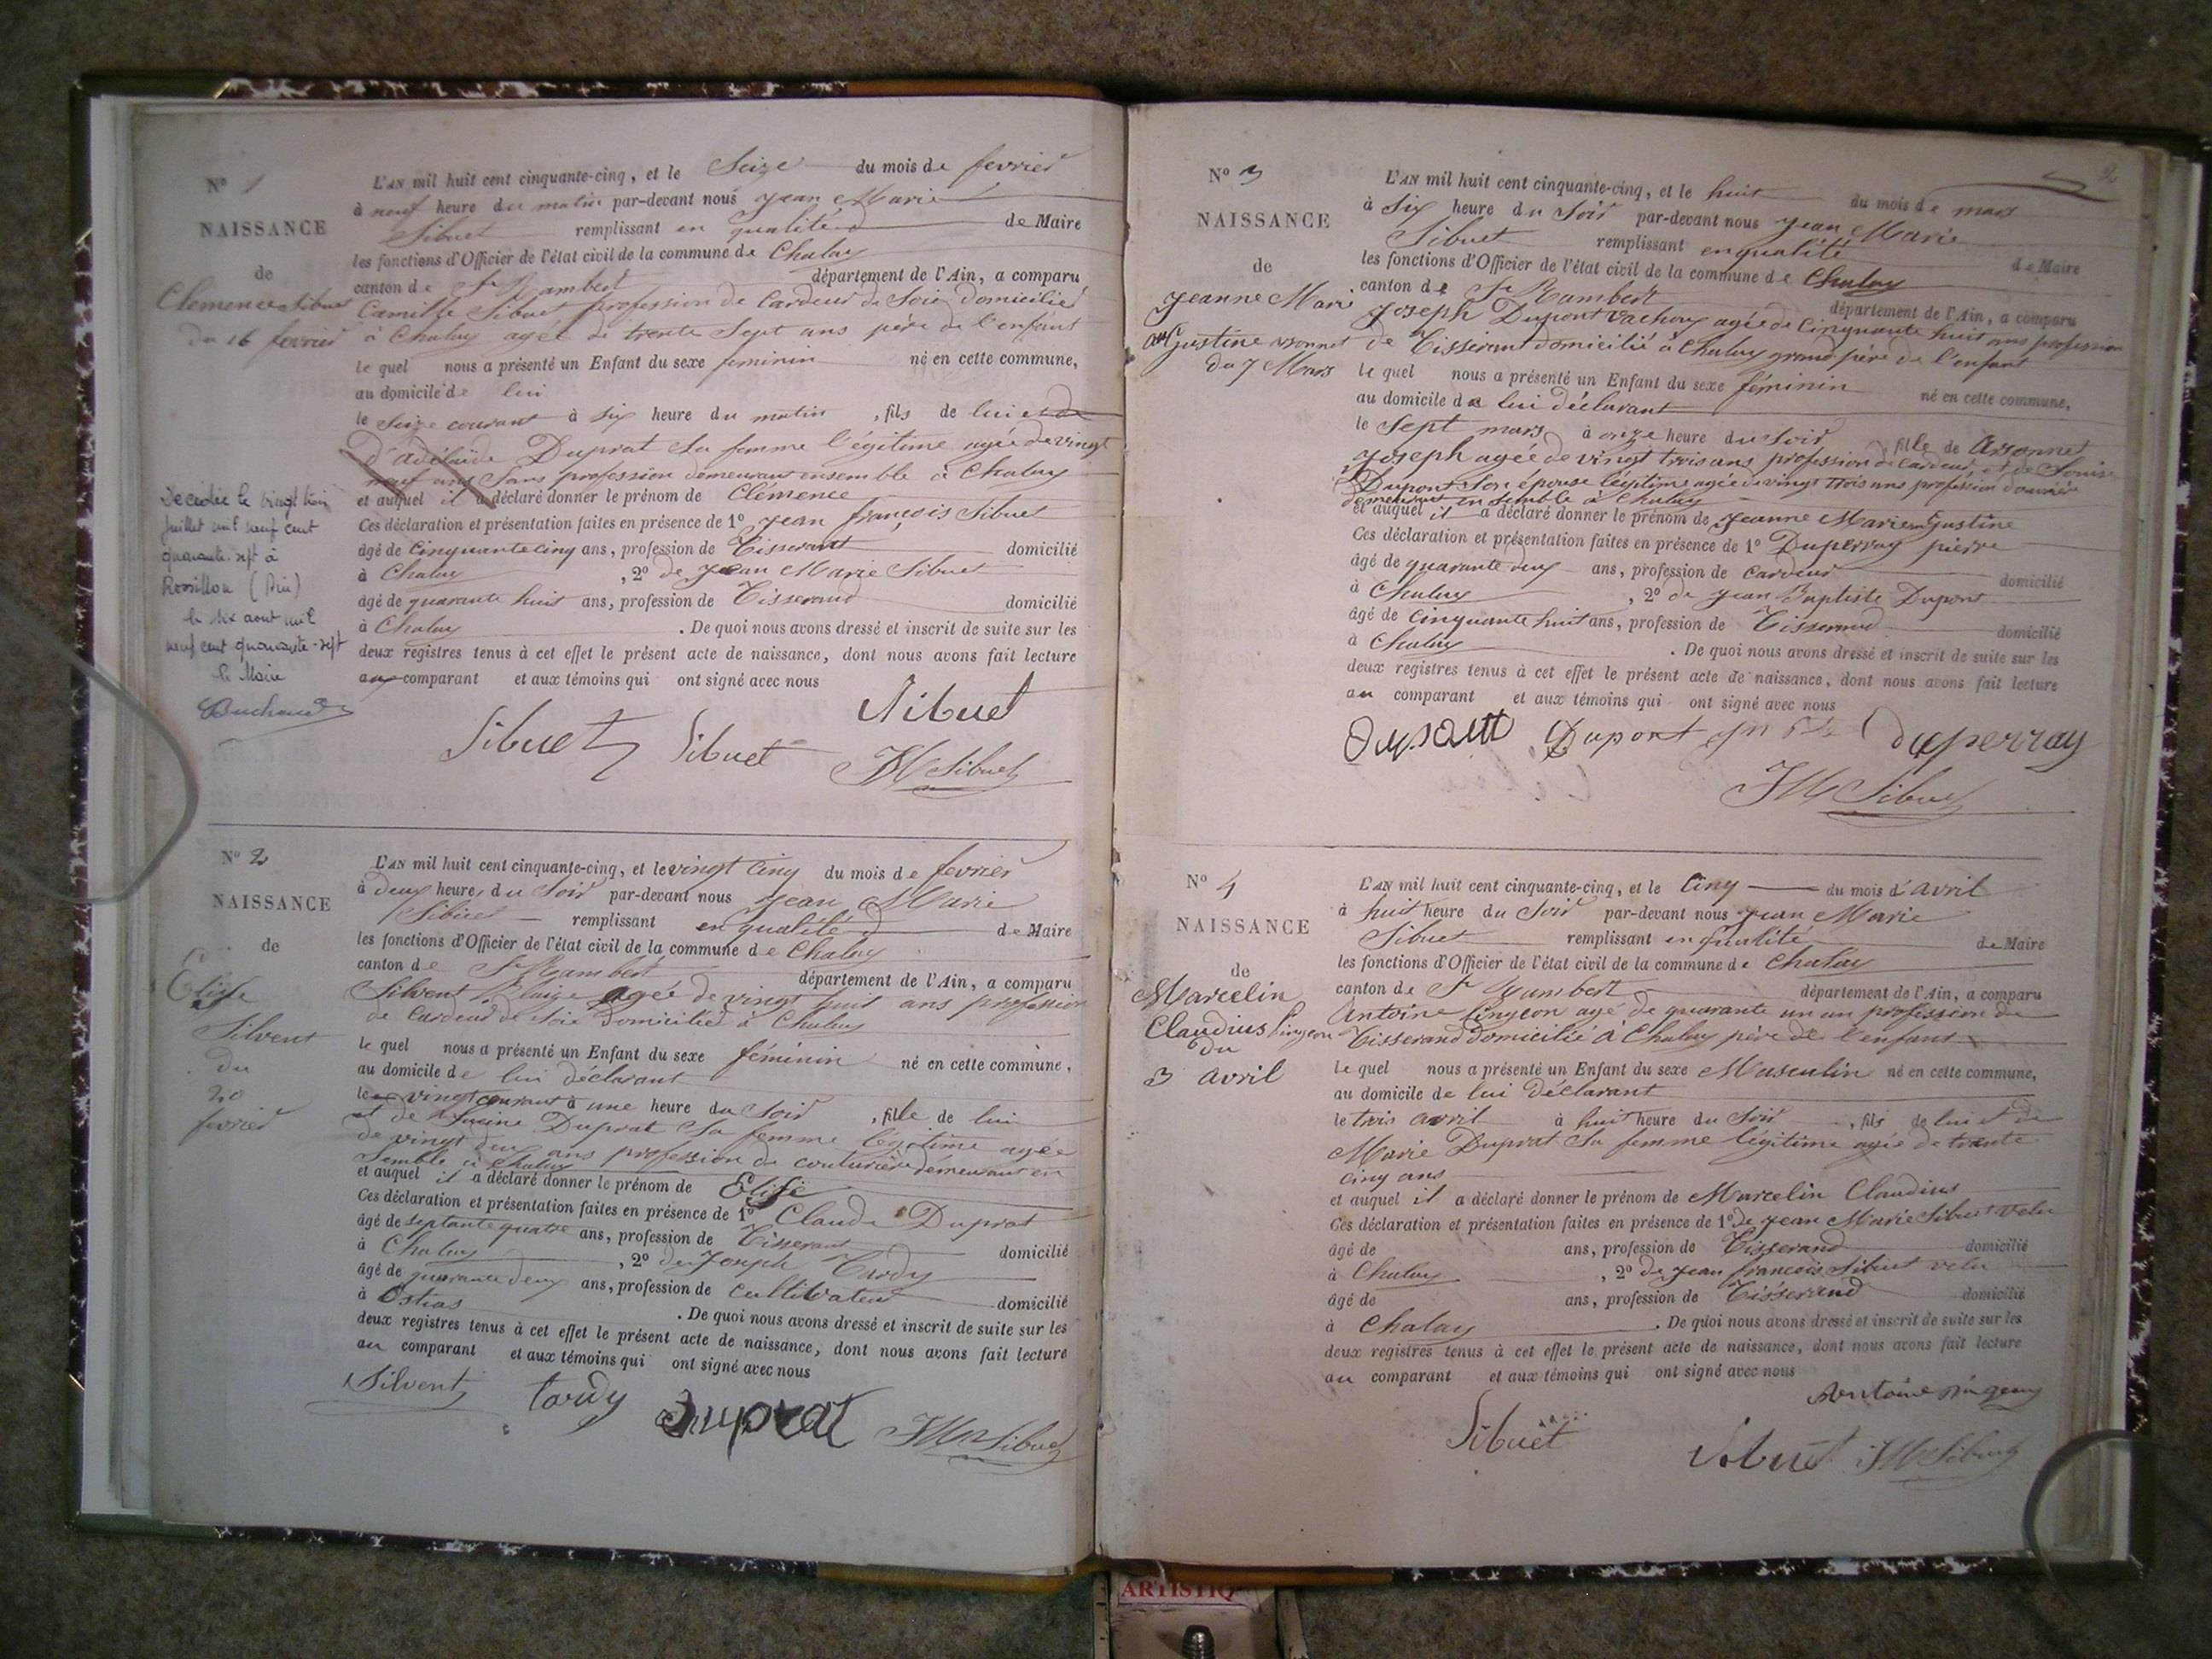 N° 1
NAISSANCE
de
Clemence Sibuet
du 16 fevrier
Decedée le vingt
juillet mil neuf cent
quarante-sept à
Rossillon (Ain)
le six aout mil
neuf cent quarante-sept
le Maire
L'AN mil huit cent cinquante-cinq, et le Seize du mois de fevrier
à neuf heure du matin par-devant nous Jean Marie
Sibuet remplissant en qualité de Maire
les fonctions d'Officier de l'état civil de la commune de Chaley
canton de St Rambert département de l'Ain, a comparu
Camille Sibuet profession de Cardeur de Soie domicilié
à Chaley agée de trente Sept ans père de l'enfant
le quel nous a présenté un Enfant du sexe feminin né en cette commune,
au domicile de lui
le Seize courant à six heure du matin , fils de lui et de
d'adélaïde Duprat Sa femme légitime agée de vingt
neuf ans Sans profession demeurant ensemble à Chaley
et auquel il a déclaré donner le prénom de Clémence
Ces déclaration et présentation faites en présence de 1° Jean françois Sibuet
âgé de Cinquante cinq ans, profession de Tisserant domicilié
à Chaley , 2° de Jean Marie Sibuet
âgé de quarante huit ans, profession de Tisserand domicilié
à Chaley . De quoi nous avons dressé et inscrit de suite sur les
deux registres tenus à cet effet le présent acte de naissance, dont nous avons fait lecture
au comparant et aux témoins qui ont signé avec nous
Sibuet
Sibuet Sibuet JM Sibuet
N° 2
NAISSANCE
de
Elise
Silvent
du
20
fevrier
L'AN mil huit cent cinquante-cinq, et le vingt cinq du mois de fevrier
à deux heure, du Soir par-devant nous Jean Marie
Sibuet remplissant en qualité de Maire
les fonctions d'Officier de l'état civil de la commune de Chaley
canton de St Rambert département de l'Ain, a comparu
Silvent Blaize agée de vingt huit ans profession
de Cardeur de Soie domicilié à Chaley
le quel nous a présenté un Enfant du sexe féminin né en cette commune,
au domicile de lui déclarant
le vingt courant à une heure du Soir , fille de lui
et de Duprat Sa femme légitime agée
de vingt deux ans profession de couturière demeurant en
semble à Chaley
et auquel il a déclaré donner le prénom de Elise
Ces déclaration et présentation faites en présence de 1° Claude Duprat
âgé de septante quatre ans, profession de Tisserant domicilié
à Chaley , 2° de Joseph Tardy
âgé de quarante deux ans, profession de Cultivateur domicilié
à Ostias . De quoi nous avons dressé et inscrit de suite sur les
deux registres tenus à cet effet le présent acte de naissance, dont nous avons fait lecture
au comparant et aux témoins qui ont signé avec nous
Silvent tardy Duprat JM Sibuet
2
N° 3
NAISSANCE
de
Jeanne Marie
Gustine Arsonnet
du 7 Mars
L'AN mil huit cent cinquante-cinq, et le huit du mois de mars
à Six heure du Soir par-devant nous Jean Marie
Sibuet remplissant en qualité de Maire
les fonctions d'Officier de l'état civil de la commune de Chaley
canton de St Rambert département de l'Ain, a comparu
Joseph Dupont Vachoux agée de Cinquante huit ans profession
de Tisserant domicilié à Chaley grand père de l'enfant
le quel nous a présenté un Enfant du sexe féminin né en cette commune,
au domicile de lui déclarant
le Sept mars à onze heure du Soir , fille de Arsonnet
Joseph agée de vingt trois ans profession de Cardeur et de
Dupont Son épouse légitime agée de vingt trois ans profession
demeurant ensemble à Chaley
et auquel il a déclaré donner le prénom de Jeanne Marie Gustine
Ces déclaration et présentation faites en présence de 1° Duperray pierre
âgé de quarante deux ans, profession de Cardeur domicilié
à Chaley , 2° de Jean Baptiste Dupont
âgé de Cinquante huit ans, profession de Tisserand domicilié
à Chaley . De quoi nous avons dressé et inscrit de suite sur les
deux registres tenus à cet effet le présent acte de naissance, dont nous avons fait lecture
au comparant et aux témoins qui ont signé avec nous
Dupont Dupont duperray
JM Sibuet
N° 4
NAISSANCE
de
Marcelin
Claudius Pingeon
du
3 avril
L'AN mil huit cent cinquante-cinq, et le Cinq du mois d'avril
à huit heure du Soir par-devant nous Jean Marie
Sibuet remplissant en qualité de Maire
les fonctions d'Officier de l'état civil de la commune de Chaley
canton de St Rambert département de l'Ain, a comparu
Antoine Pingeon agé de quarante un an profession de
Tisserand domicilié à Chaley père de l'enfant
le quel nous a présenté un Enfant du sexe Masculin né en cette commune,
au domicile de lui déclarant
le trois avril à huit heure du Soir , fils de lui et de
Marie Duprat Sa femme légitime agée de trante
cinq ans
et auquel il a déclaré donner le prénom de Marcelin Claudius
Ces déclaration et présentation faites en présence de 1° de Jean Marie Sibuet velu
âgé de ans, profession de Tisserand domicilié
à Chaley , 2° de Jean françois Sibuet velu
âgé de ans, profession de Tisserand domicilié
à Chaley . De quoi nous avons dressé et inscrit de suite sur les
deux registres tenus à cet effet le présent acte de naissance, dont nous avons fait lecture
au comparant et aux témoins qui ont signé avec nous
Antoine pingeon
Sibuet Sibuet JM Sibuet
ARTISTIQ